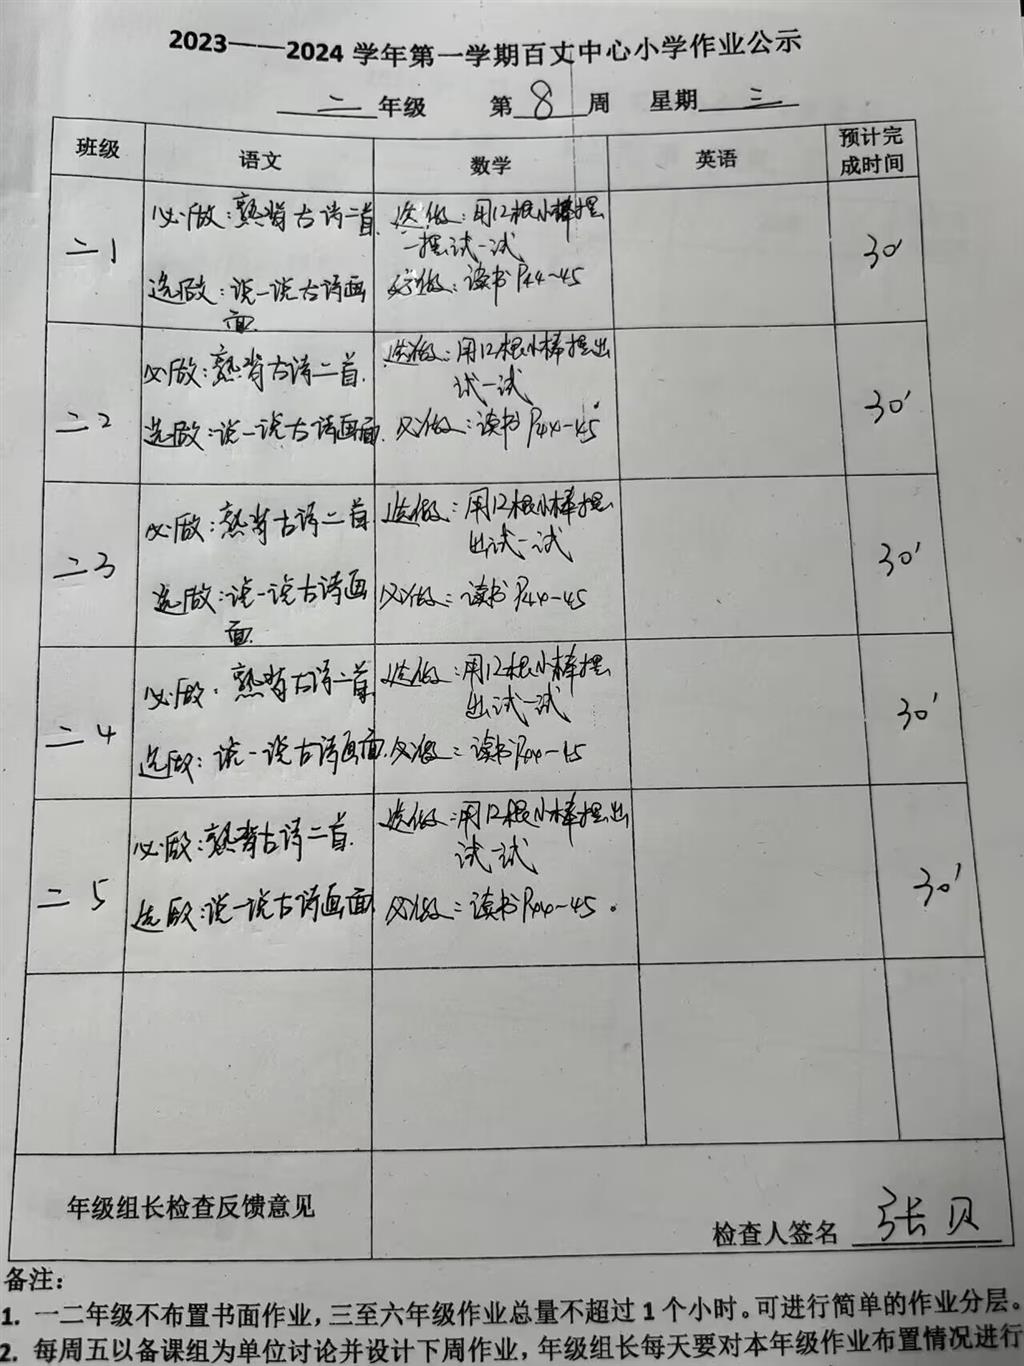 2023——2024 学年第一学期百丈中心小学作业公示
二 年级 第 8 周 星期 三
班级 语文 数学 英语 预计完成时间
二1
必做：熟背古诗二首.
选做：说一说古诗画
面.
选做：用12根小棒摆
一摆试一试
必做：读书P44~45
30'
二2
必做：熟背古诗二首.
选做：说一说古诗画面.
选做：用12根小棒摆出
试一试
必做：读书P44-45
30'
二3
必做：熟背古诗二首
选做：说一说古诗画
面.
选做：用12根小棒摆
出试一试
必做：读书P44-45
30'
二4
必做：熟背古诗二首
选做：说一说古诗画面.
选做：用12根小棒摆
出试一试
必做：读书P44-45
30'
二5
必做：熟背古诗二首.
选做：说一说古诗画面
选做：用12根小棒摆出
试试
必做：读书P44~45.
30'
年级组长检查反馈意见
检查人签名 张贝
备注：
1. 一二年级不布置书面作业，三至六年级作业总量不超过 1 个小时。可进行简单的作业分层。
2. 每周五以备课组为单位讨论并设计下周作业，年级组长每天要对本年级作业布置情况进行